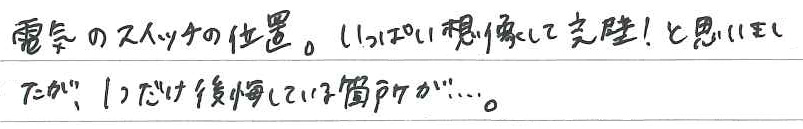 電気のスイッチの位置。いっぱい想像して完璧!と思いまし
たが、1つだけ後悔している箇所が…。